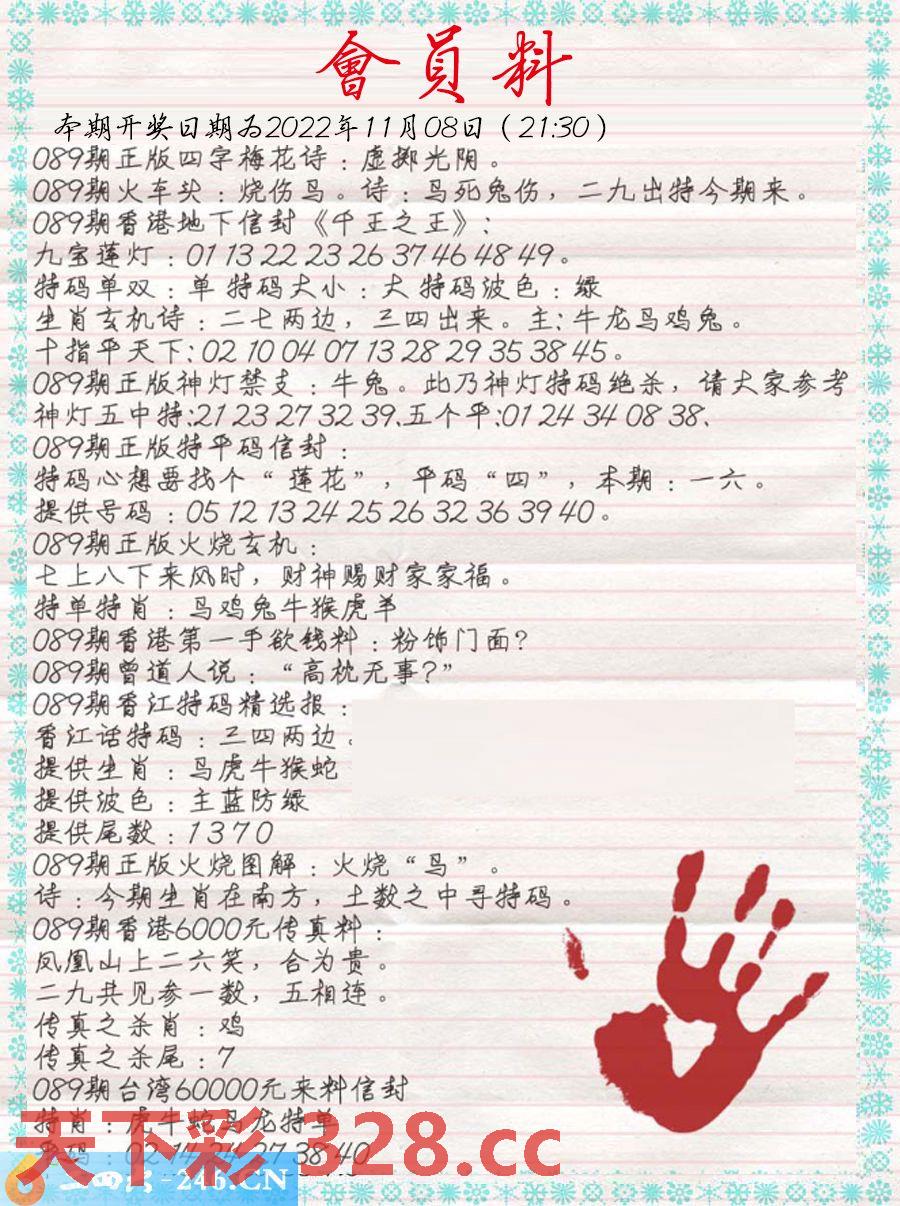 會員料
本期开奖日期为2022年11月08日（21:30）
089期正版四字梅花诗：虚掷光阴。
089期火车头：烧伤鸟。诗：鸟死兔伤，二九出特今期来。
089期香港地下信封《千王之王》：
九宝莲灯：01 13 22 23 26 37 46 48 49。
特码单双：单 特码大小：大 特码波色：绿
生肖玄机诗：二七两边，三四出来。主：牛龙鸟鸡兔。
十指平天下：02 10 04 07 13 28 29 35 38 45。
089期正版神灯禁支：牛兔。此乃神灯特码绝杀，请大家参考
神灯五中特:21 23 27 32 39.五个平:01 24 34 08 38、
089期正版特平码信封：
特码心想要找个“莲花”，平码“四”，本期：一六。
提供号码：05 12 13 24 25 26 32 36 39 40。
089期正版火烧玄机：
七上八下来风时，财神赐财家家福。
特单特肖：鸟鸡兔牛猴虎羊
089期香港第一手欲钱料：粉饰门面？
089期曾道人说：“高枕无事？”
089期香江特码精选报：
香江话特码：三四两边。
提供生肖：鸟虎牛猴蛇
提供波色：主蓝防绿
提供尾数：1 3 7 0
089期正版火烧图解：火烧“鸟”。
诗：今期生肖在南方，土数之中寻特码。
089期香港6000元传真料：
凤凰山上二六笑，合为贵。
二九共见参一数，五相连。
传真之杀肖：鸡
传真之杀尾：7
089期台湾60000元来料信封
特肖：虎牛蛇鸟龙特单
平码：02 14 24 27 38 40
天下彩 328.cc
-246.CN